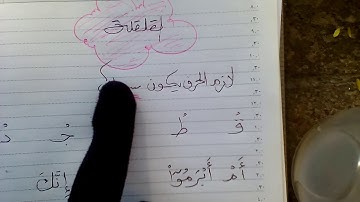 القلقلة
لازم الحرف يكون
قُ طُ جُ
أَمْ أَبْرَمُوٓاْ إِنَّكَ